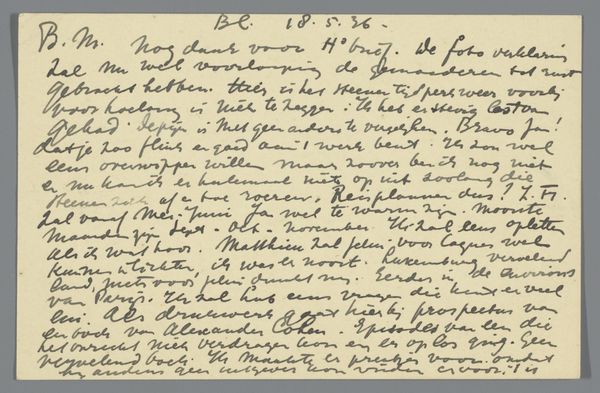 Bl. 18.5.36 -
B. M. Nog dank voor Uw brief. De foto verklaring
zal nu wel voorloopig de gemoederen tot rust
gebracht hebben. Hier is het steenen tijdperk weer voorbij
voor hoelang is niet te zeggen. Ik heb er stevig last van
gehad. De pijn is met geen andere te vergelijken. Bravo Jan!
dat je zoo flink en goed aan 't werk bent. Ik zou wel
eens overwippen willen maar zoover ben ik nog niet
en nu kan ik er heelemaal niets op uit zoolang die
steenen zich af en toe roeren. Reisplannen dus! Z. Fr.
zal vanaf Mei-Juni Jan wel te warm zijn. Mooiste
maanden zijn Sept - Oct - November. Ik zal eens opletten
als ik wat hoor. Matthieu zal jelui voor Cagnes wel
kunnen inlichten, ik was er nooit. Luxemburg vervelend
land, niets voor jelui dunkt mij. Eerder in de environs
van Parijs. Ik zal hub eens vragen die kent er veel
 Als drukwerk gaat hierbij prospectus van
een boek van Alexander Cohen. Episodes van een die
het onrecht niet verdragen kon en er op los ging. Geen
vervelend boek. Ik maakte er prentjes voor omdat
hij anders geen uitgever kon vinden ervoor. 't is